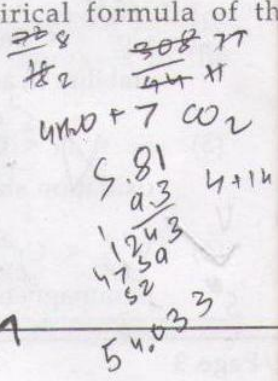 irical formula of th
72 8
18 2
308 77
44 11
4H2O + 7 CO2
5.81
9.3
4+14
1
1243
4759
52
54.033